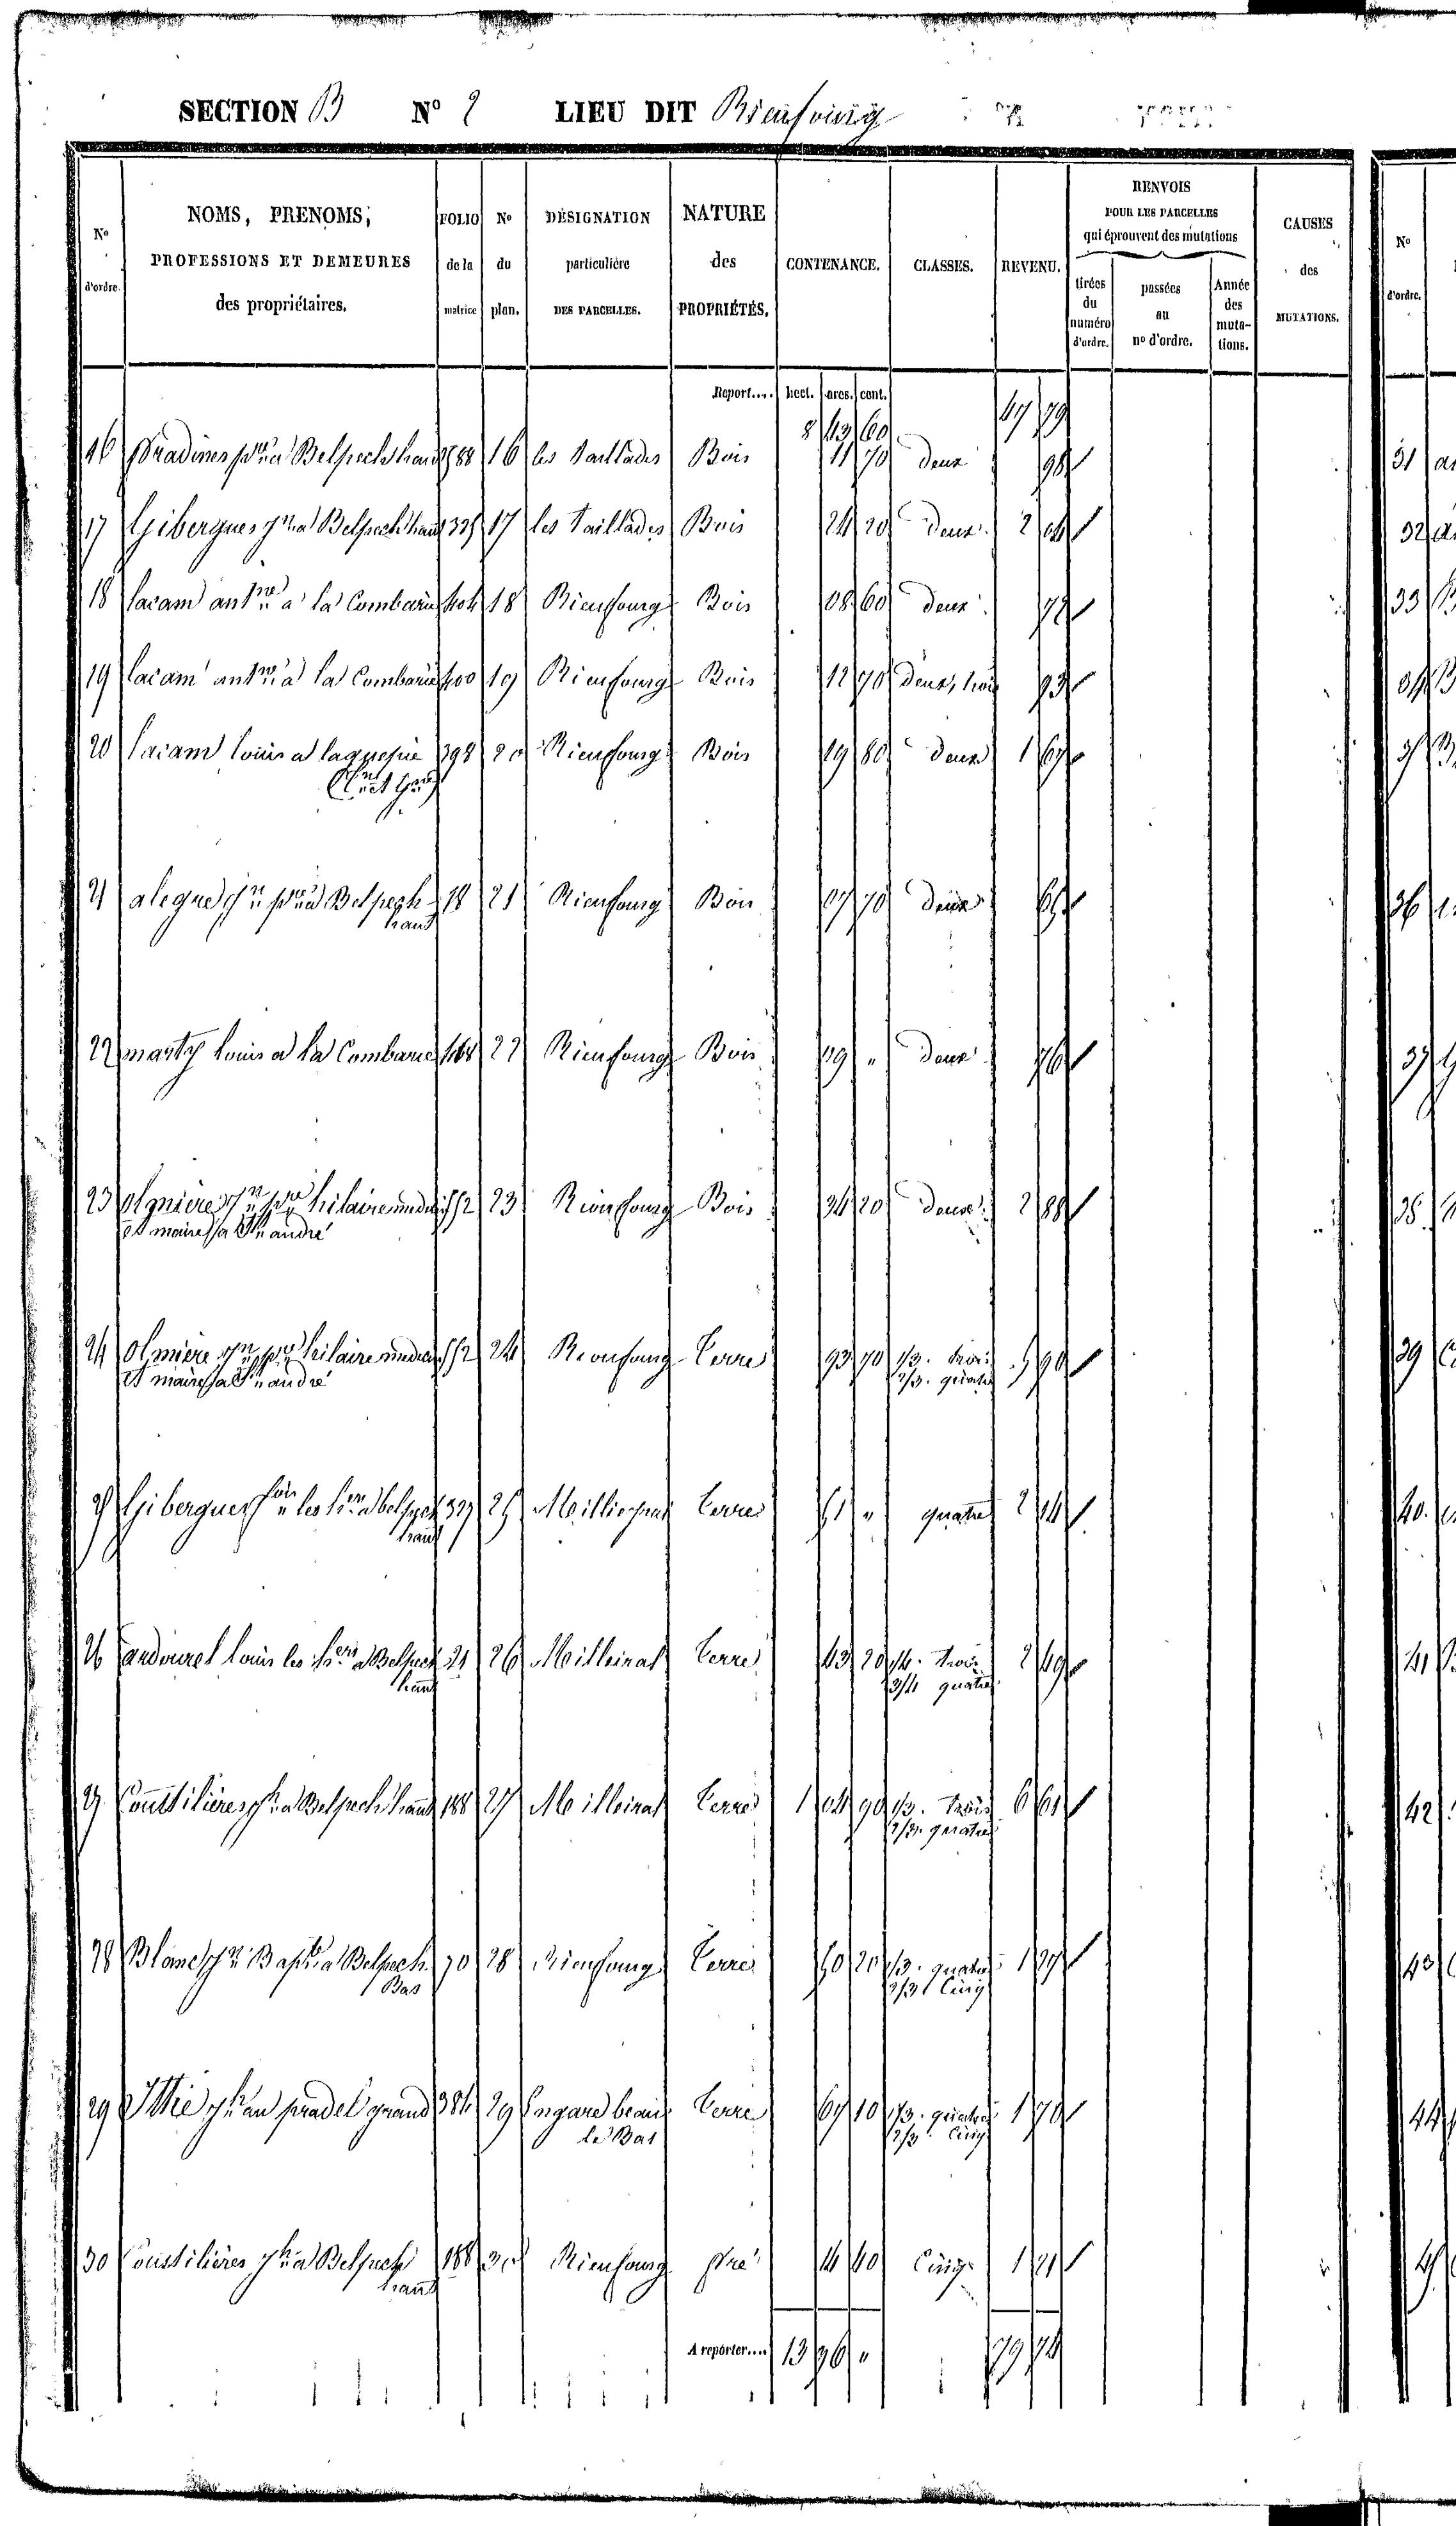 SECTION B N° 2 LIEU DIT Rieufourg
N° d'ordre.
NOMS, PRENOMS, PROFESSIONS ET DEMEURES des propriétaires.
FOLIO de la matrice
N° du plan.
DÉSIGNATION particulière DES PARCELLES.
NATURE des PROPRIÉTÉS.
CONTENANCE.
CLASSES.
REVENU.
RENVOIS POUR LES PARCELLES qui éprouvent des mutations
tirées du numéro d'ordre.
passées au n° d'ordre.
Année des muta-tions.
CAUSES des MUTATIONS.
N° d'ordre.
Report.... hect. ares. cent.
8 43 60 47 79
16 Pradines pre a Belpech haut 588 16 les taillades Bois 11 70 deux 98
17 Gibergues jn a Belpech haut 325 17 les taillades Bois 24 20 deux 2 04
18 lacam antne a la Combarie 404 18 Rieufourg Bois 08 60 deux 72
19 lacam antne a la Combarie 400 19 Rieufourg Bois 12 70 deux, trois 93
20 lacam louis a laguepie 398 20 Rieufourg Bois 19 80 deux 1 67
21 alegre jn pre a Belpech 18 21 Rieufourg Bois 07 70 deux 65
haut
22 marty louis a la Combarie 468 22 Rieufourg Bois 09 " deux 76
23 olmière jn pre hilaire medecin 552 23 Rieufourg Bois 34 20 deux 2 88
et maire a St andré
24 olmière jn pre hilaire medecin 552 24 Rieufourg terre 93 70 1/3. trois 5 90
et maire a St andré 2/3. quatre
25 Gibergues fois les hers a belpech 327 25 Meilleirat terre 51 " quatre 2 14
haut
26 andouret louis les hers a Belpech 21 26 Meilleirat terre 43 20 1/4. trois 2 49
haut 3/4 quatre
27 Coustilières jh a Belpech haut 188 27 Meilleirat terre 1 04 90 1/3. trois 6 61
2/3. quatre
28 Blanc jn Bapte a Belpech 70 28 Rieufourg terre 50 20 1/3. quatre 1 27
Bas 2/3 Cinq
29 Ithié jh au pradel grand 384 29 Engare beau terre 67 10 1/3. quatre 1 70
le Bas 2/3 Cinq
30 Coustilières jh a Belpech 188 30 Rieufourg pré 14 40 Cinq 1 21
haut
A reporter.... 13 96 " 79 74
31
32
33
34
35
36
37
38
39
40.
41
42
43
44
45